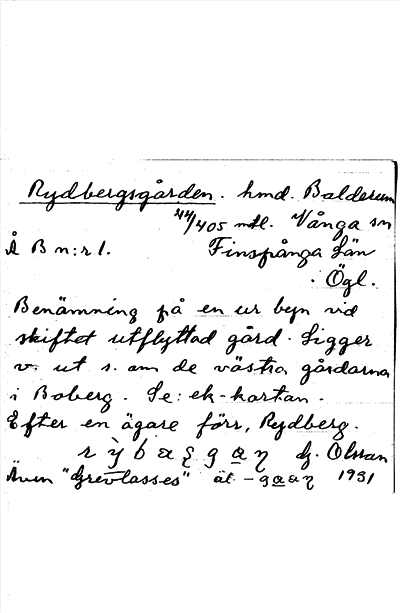 Rydbergsgården. hmd. Balderum
44/405 mtl. Vånga sn
Å B n:r 1. Finspånga Län
Ögl.
Benämning på en ur byn vid
skiftet utflyttad gård. Ligger
v. ut s. om de västra gårdarna
i Boberg. Se: ek-kartan.
Efter en ägare förr, Rydberg.
G. Olsson
Även "Grevlasses" äl. 1931